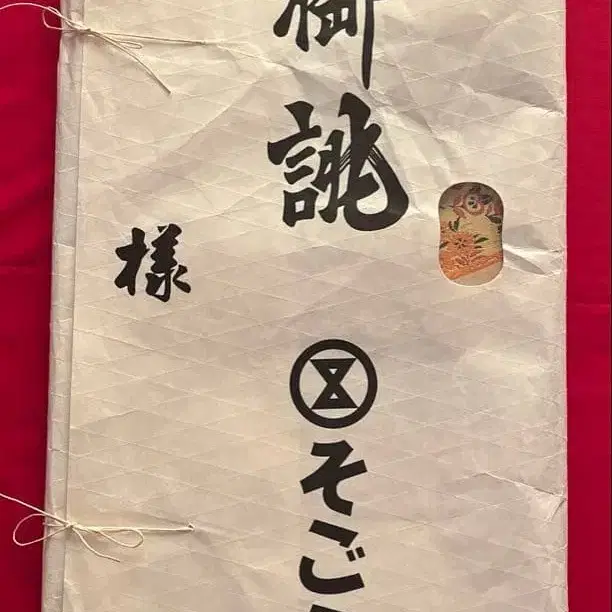 御誂
そご
様